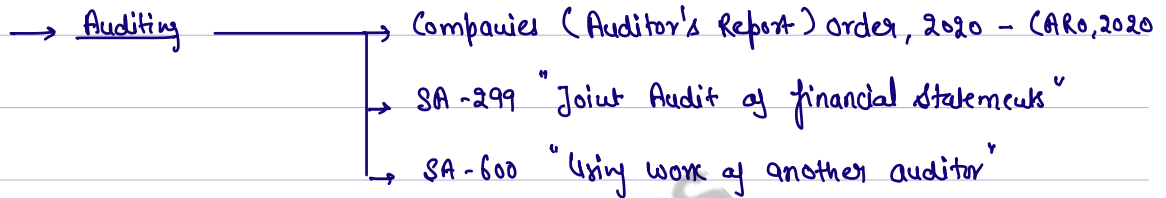 → Auditing → Companies (Auditor's Report) order, 2020 - (ARO, 2020
→ SA-299 "Joint Audit of financial statements"
→ SA-600 "Using work of another auditor"